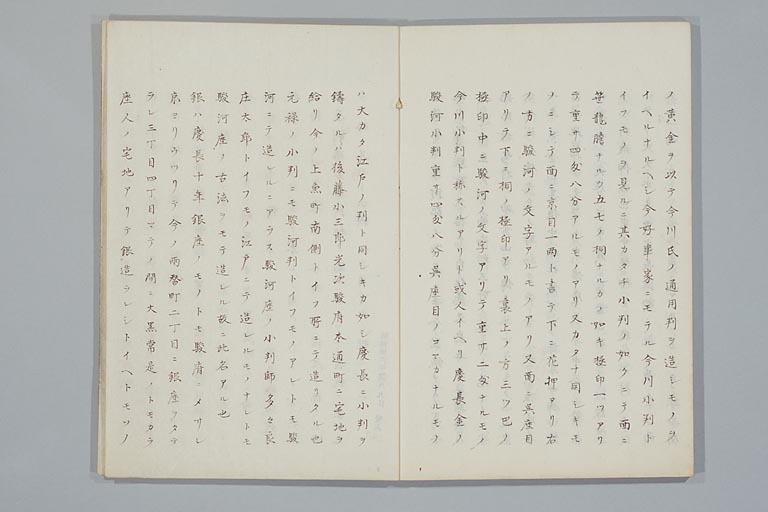 ノ黄金ヲ以テ今川氏ノ通用判ヲ造シモノヲ
イヘルナルヘシ今好事家ニモテル今川小判ト
イフモノヲ見ルニ其カタチ小判ノ如クニテ面ニ
笹龍膽ナルカ五七ノ桐ナルカノ如キ極印一ツアリ
テ重サ四匁八分アルモノアリ又カタチ同シキモ
ノニシテ面ニ京目一両ト書テ下ニ花押アリ右
ノ方ニ駿河ノ文字アルモノアリ又面ニ呉座目
アリテ下ニ桐ノ極印アリ裏上ノ方三ツ巴ノ
極印中ニ駿河ノ文字アリテ重サ二匁ナルモノ
今川小判ト称スルアリト或人イヘリ慶長金ノ
駿河小判重サ四匁八分呉座目ノコマカナルモノ
ハ大カタ江戸ノ判ト同シキカ如シ慶長ニ小判ヲ
鑄タルハ後藤小三郎光次駿府本通町ニ宅地ヲ
給リ今ノ上魚町南側トイフ所ニテ造リタル也
元禄ノ小判ニモ駿河判トイフモノアレトモ駿
河ニテ造レルニアラス駿河座ノ小判師多々良
庄太郎トイフモノ江戸ニテ造レルモノナレトモ
駿河座ノ古法ヲモテ造レル故ニ此名アル也
銀ハ慶長十年銀座ノモノトモ駿府ニメサレ
京ヨリウツリテ今ノ両替町二丁目ニ銀座ヲタテ
ラレ三丁目四丁目マテノ間ニ大黒常是ノトモカラ
座人ノ宅地アリテ銀造ラレシトイヘトモソノ